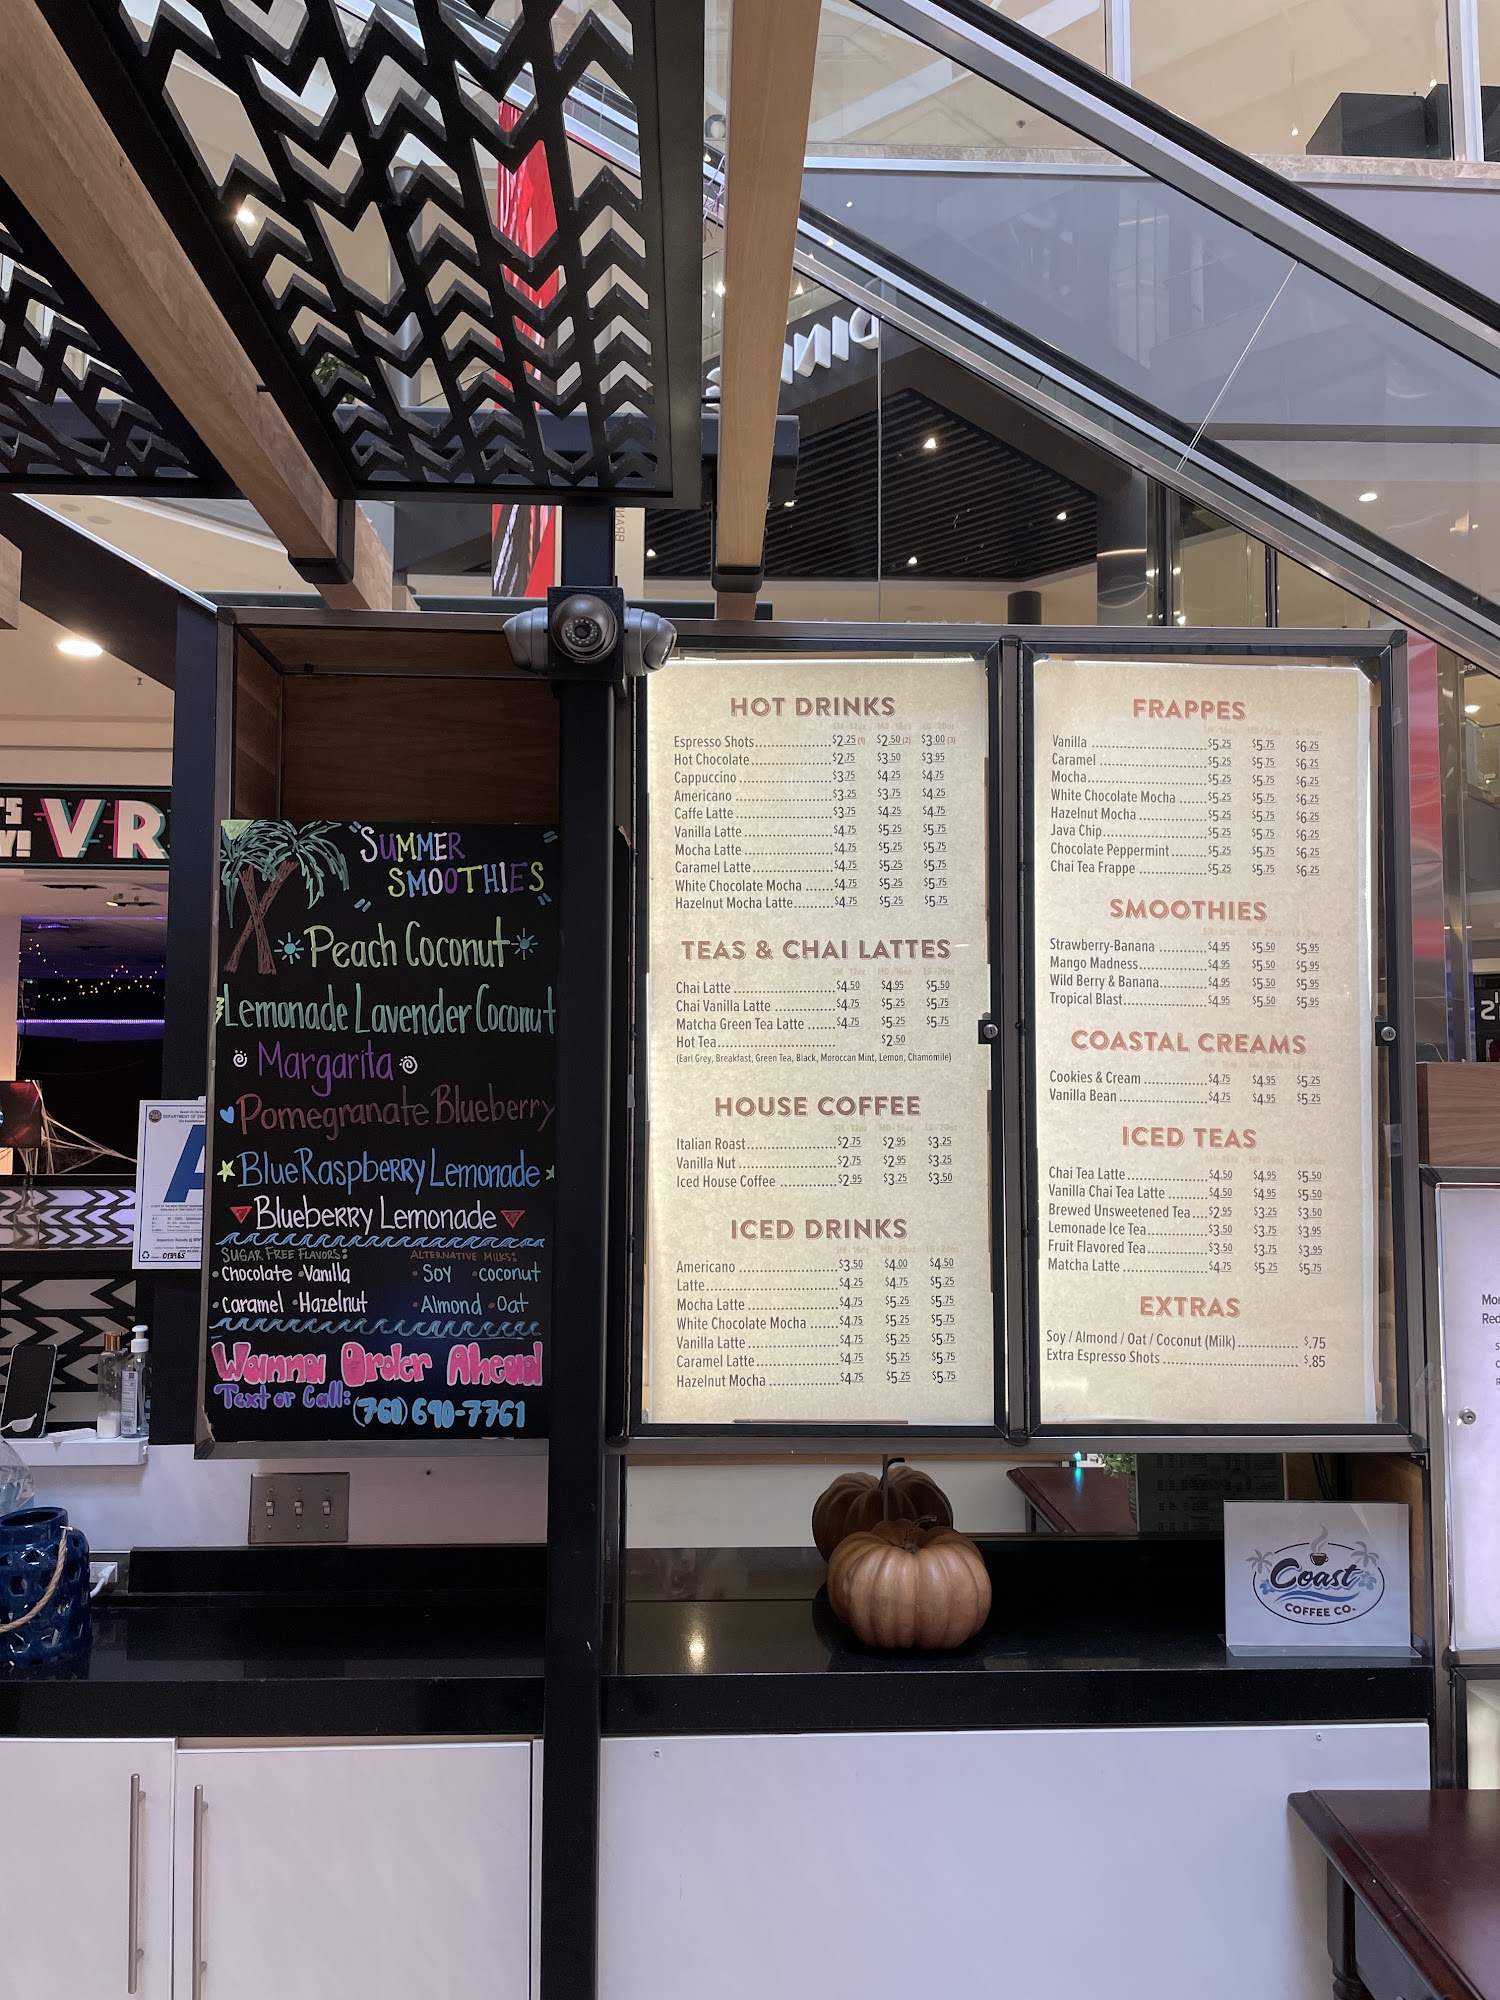 DIN
BRAN
VR
"SUMMER
SMOOTHIES"
Peach Coconut
Lemonade Lavender Coconut
Margarita
Pomegranate Blueberry
Blue Raspberry Lemonade
Blueberry Lemonade
SUGAR FREE FLAVORS:
· Chocolate · Vanilla
· Caramel · Hazelnut
ALTERNATIVE MILKS:
· Soy · coconut
· Almond · Oat
Wanna Order Ahead
Text or Call:
(760) 690-7761
A
HOT DRINKS
SM - 12oz MD - 16oz LG - 20oz
Espresso Shots $2.25 (1) $2.50 (2) $3.00 (3)
Hot Chocolate $2.75 $3.50 $3.95
Cappuccino $3.75 $4.25 $4.75
Americano $3.25 $3.75 $4.25
Caffe Latte $3.75 $4.25 $4.75
Vanilla Latte $4.75 $5.25 $5.75
Mocha Latte $4.75 $5.25 $5.75
Caramel Latte $4.75 $5.25 $5.75
White Chocolate Mocha $4.75 $5.25 $5.75
Hazelnut Mocha Latte $4.75 $5.25 $5.75
TEAS & CHAI LATTES
SM - 12oz MD - 16oz LG - 20oz
Chai Latte $4.50 $4.95 $5.50
Chai Vanilla Latte $4.75 $5.25 $5.75
Matcha Green Tea Latte $4.75 $5.25 $5.75
Hot Tea $2.50
(Earl Grey, Breakfast, Green Tea, Black, Moroccan Mint, Lemon, Chamomile)
HOUSE COFFEE
SM - 12oz MD - 16oz LG - 20oz
Italian Roast $2.75 $2.95 $3.25
Vanilla Nut $2.75 $2.95 $3.25
Iced House Coffee $2.95 $3.25 $3.50
ICED DRINKS
Americano $3.50 $4.00 $4.50
Latte $4.25 $4.75 $5.25
Mocha Latte $4.75 $5.25 $5.75
White Chocolate Mocha $4.75 $5.25 $5.75
Vanilla Latte $4.75 $5.25 $5.75
Caramel Latte $4.75 $5.25 $5.75
Hazelnut Mocha $4.75 $5.25 $5.75
FRAPPES
Vanilla $5.25 $5.75 $6.25
Caramel $5.25 $5.75 $6.25
Mocha $5.25 $5.75 $6.25
White Chocolate Mocha $5.25 $5.75 $6.25
Hazelnut Mocha $5.25 $5.75 $6.25
Java Chip $5.25 $5.75 $6.25
Chocolate Peppermint $5.25 $5.75 $6.25
Chai Tea Frappe $5.25 $5.75 $6.25
SMOOTHIES
Strawberry-Banana $4.95 $5.50 $5.95
Mango Madness $4.95 $5.50 $5.95
Wild Berry & Banana $4.95 $5.50 $5.95
Tropical Blast $4.95 $5.50 $5.95
COASTAL CREAMS
Cookies & Cream $4.75 $4.95 $5.25
Vanilla Bean $4.75 $4.95 $5.25
ICED TEAS
Chai Tea Latte $4.50 $4.95 $5.50
Vanilla Chai Tea Latte $4.50 $4.95 $5.50
Brewed Unsweetened Tea $2.95 $3.25 $3.50
Lemonade Ice Tea $3.50 $3.75 $3.95
Fruit Flavored Tea $3.50 $3.75 $3.95
Matcha Latte $4.75 $5.25 $5.75
EXTRAS
Soy / Almond / Oat / Coconut (Milk) $.75
Extra Espresso Shots $.85
Coast
COFFEE CO.